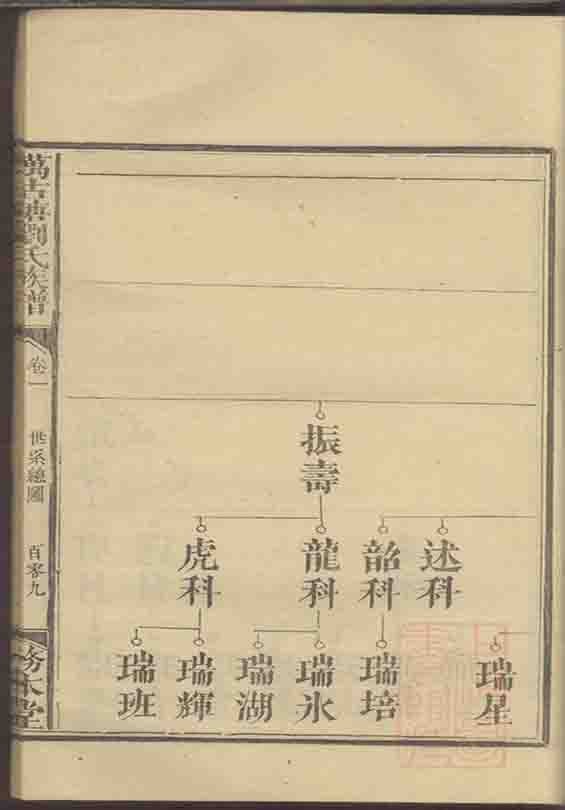 振壽
述科
韶科
龍科
虎科
瑞星
瑞培
瑞氷
瑞湖
瑞輝
瑞班
萬古塘劉氏族譜
卷一
世系總圖
百零九
務本堂